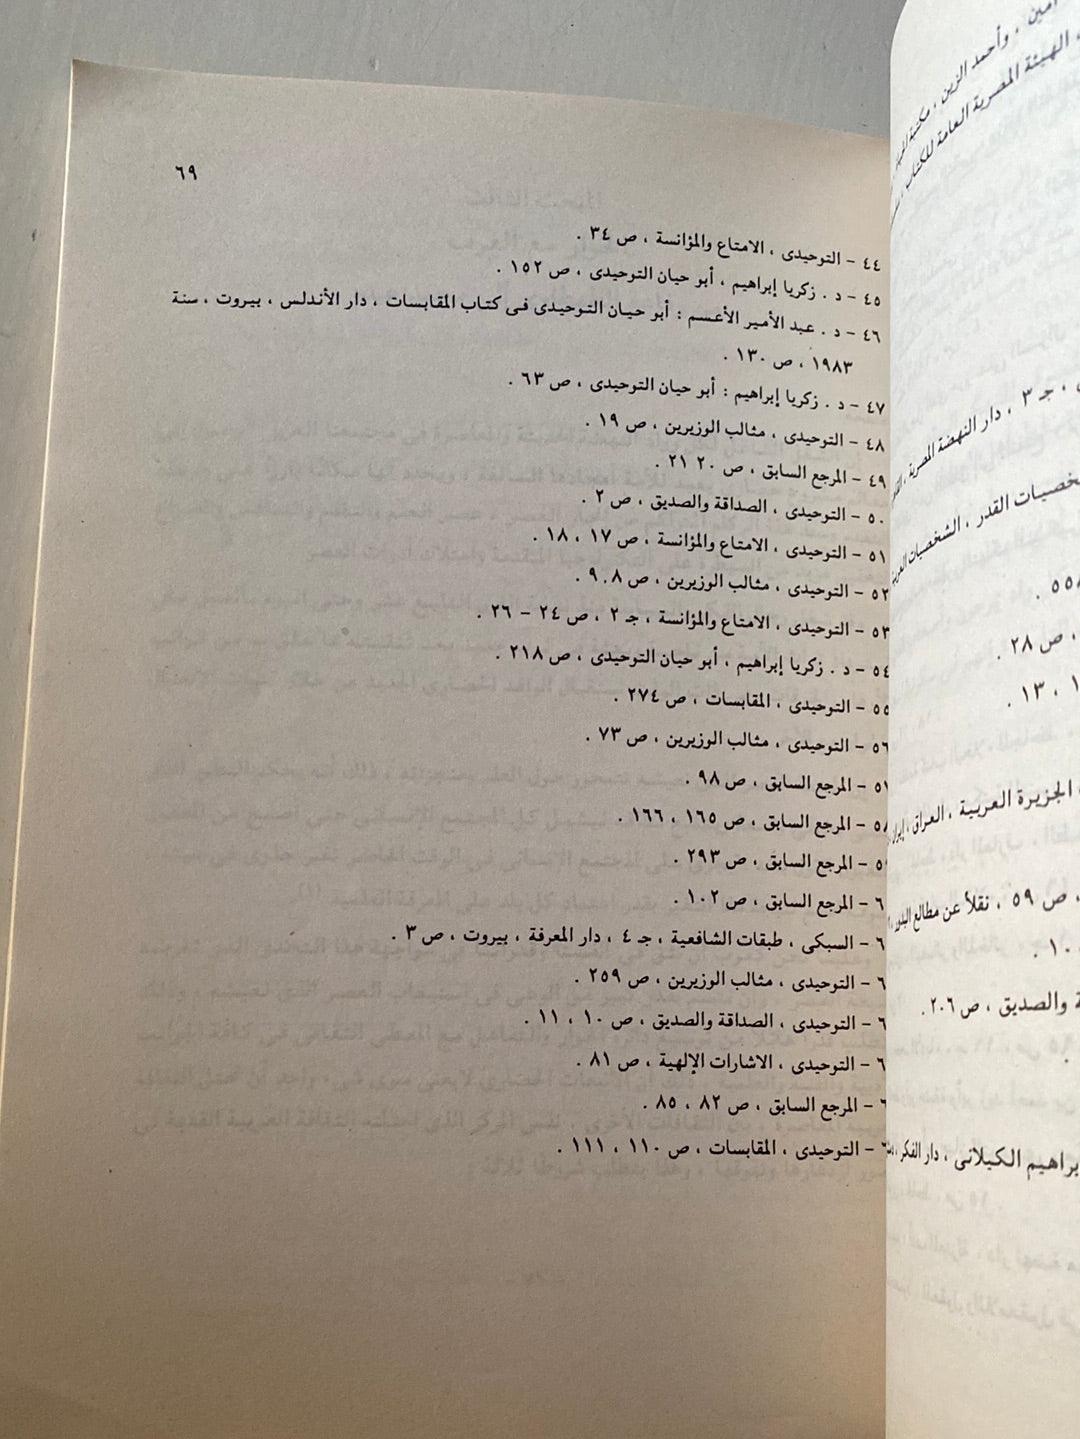 ٦٩
٤٤ - التوحيدى ، الامتاع والمؤانسة ، ص ٣٤ .
٤٥ - د . زكريا إبراهيم ، أبو حيان التوحيدى ، ص ١٥٢ .
٤٦ - د . عبد الأمير الأعسم : أبو حيان التوحيدى فى كتاب المقابسات ، دار الأندلس ، بيروت ، سنة
١٩٨٣ ، ص ١٣٠ .
٤٧ - د . زكريا إبراهيم : أبو حيان التوحيدى ، ص ٦٣ .
٤٨ - التوحيدى ، مثالب الوزيرين ، ص ١٩ .
٤٩ - المرجع السابق ، ص ٢٠ ٢١ .
٥٠ - التوحيدى ، الصداقة والصديق ، ص ٢ .
٥١ - التوحيدى ، الامتاع والمؤانسة ، ص ١٧ ، ١٨ .
٥٢ - التوحيدى ، مثالب الوزيرين ، ص ٩،٨ .
٥٣ - التوحيدى ، الامتاع والمؤانسة ، جـ ٢ ، ص ٢٤ - ٢٦ .
٥٤ - د . زكريا إبراهيم ، أبو حيان التوحيدى ، ص ٢١٨ .
٥٥ - التوحيدى ، المقابسات ، ص ٢٧٤ .
٥٦ - التوحيدى ، مثالب الوزيرين ، ص ٧٣ .
٥٧ - المرجع السابق ، ص ٩٨ .
٥٨ - المرجع السابق ، ص ١٦٥ ، ١٦٦ .
٥ - المرجع السابق ، ص ٢٩٣ .
٦ - المرجع السابق ، ص ١٠٢ .
٦ - السبكى ، طبقات الشافعية ، جـ ٤ ، دار المعرفة ، بيروت ، ص ٣ .
٦ - التوحيدى ، مثالب الوزيرين ، ص ٢٥٩ .
٦ - التوحيدى ، الصداقة والصديق ، ص ١٠ ، ١١ .
٦ - التوحيدى ، الاشارات الإلهية ، ص ٨١ .
٦ - المرجع السابق ، ص ٨٢ ، ٨٥ .
٦ - التوحيدى ، المقابسات ، ص ١١٠ ، ١١١ .
، وأحمد الزين ، مكتبة
الهيئة المصرية العامة للكتاب ،
جـ ٣ ، دار النهضة المصرية ،
القدر ، الشخصيات
٥٥٨ .
، ص ٢٨ .
، ١٣ .
الجزيرة العربية ، العراق ، إيران
، ص ٥٩ ، نقلاً عن مطالع البدور ،
١٠ .
والصديق ، ص ٢٠٦ .
.
الكيلانى ، دار الفكر ،